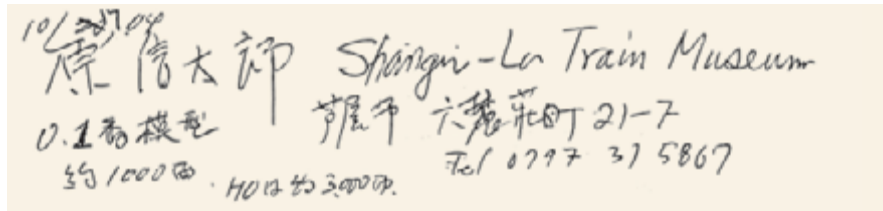 原信太郎 Shangri-La Train Museum
0.1番模型 芦屋市 六麓荘町 21-7
約1000両. HOは約3,000両. Tel 0797 31 5867